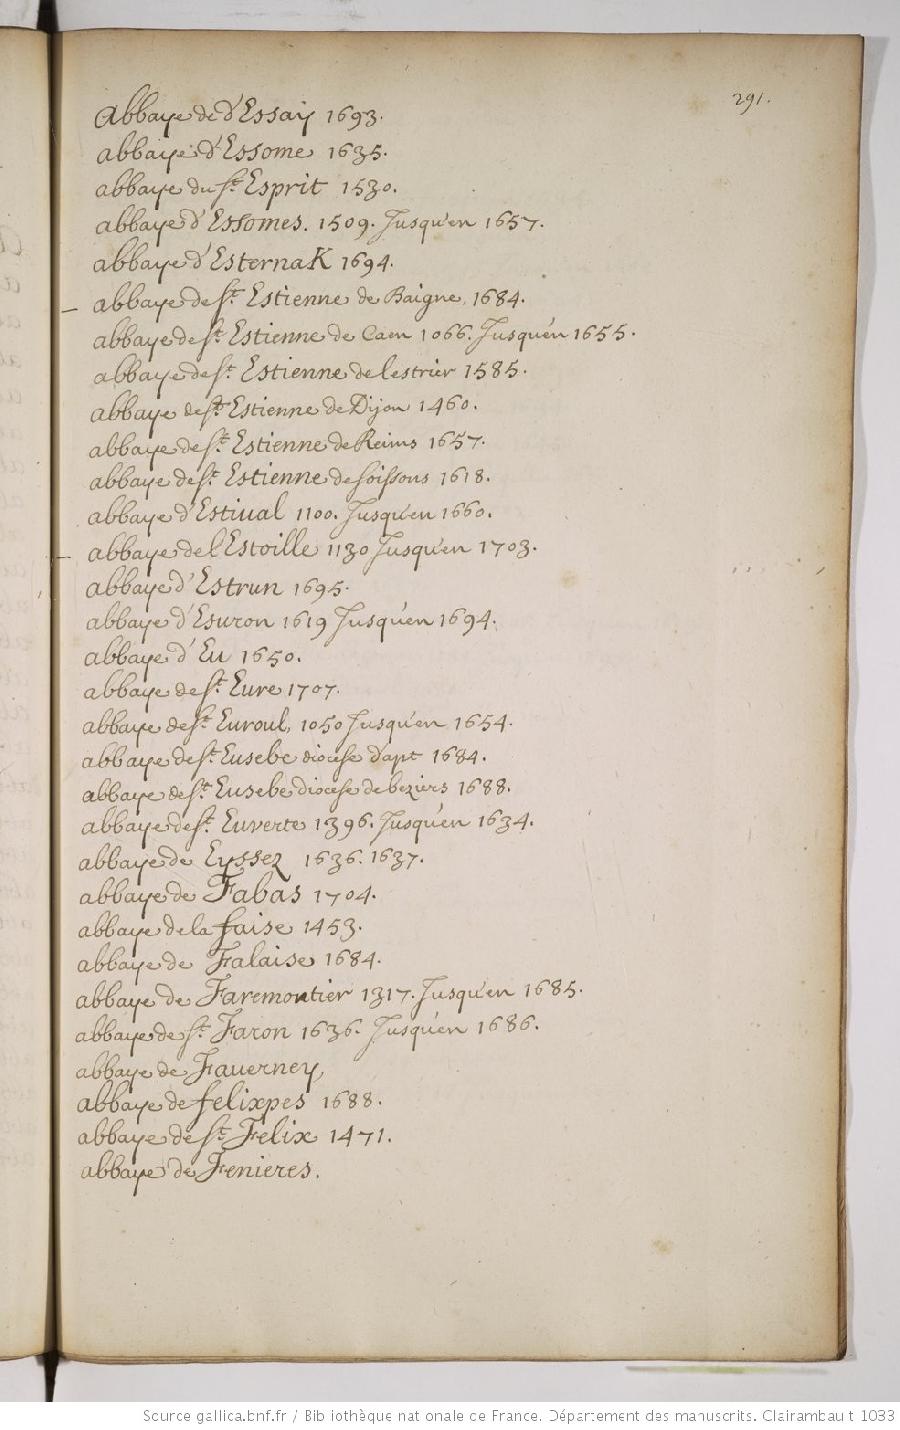 291.
abbaye de d'Essay 1693.
abbaye d'Essome 1635.
abbaye du St. Esprit 1530.
abbaye d'Essomes. 1509. Jusqu'en 1657.
abbaye d'EsternaK 1694.
abbaye de St. Estienne de Baigne, 1684.
abbaye de St. Estienne de Caen 1066. Jusqu'en 1655.
abbaye de St. Estienne de lestrier 1585.
abbaye de St. Estienne de Dijon 1460.
abbaye de St. Estienne de Reims 1657.
abbaye de St. Estienne de soissons 1618.
abbaye d'Estiual 1100. Jusqu'en 1660.
abbaye de l'Estoille 1130 Jusqu'en 1703.
abbaye d'Estrun 1695.
abbaye d'Esuron 1619 Jusqu'en 1694.
abbaye d'Eu 1650.
abbaye de St. Eure 1707.
abbaye de St. Euroul, 1050 Jusqu'en 1654.
abbaye de St. Eusebe diocese d'apt 1684.
abbaye de St. Eusebe diocese de beziers 1688.
abbaye de St. Euverte 1396. Jusqu'en 1634.
abbaye de Eyssez 1636. 1637.
abbaye de Fabas 1704.
abbaye de la faise 1453.
abbaye de Falaise 1684.
abbaye de Faremontier 1317. Jusqu'en 1685.
abbaye de St. Faron 1636. Jusqu'en 1686.
abbaye de Fauerney,
abbaye de felixpes 1688.
abbaye de St. Felix 1471.
abbaye de Fenieres.
Source gallica.bnf.fr / Bibliothèque nationale de France. Département des manuscrits. Clairambault 1033